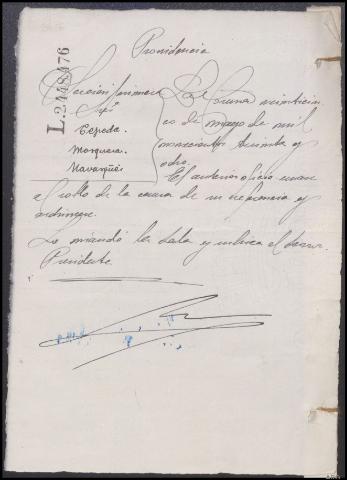 Providencia
L.2448476
Sección primera
Sres
Cepeda.
Mosquera
Navargüés
La Coruña veinticin
co de mayo de mil
novecientos treinta y
ocho.
El anterior oficio únase
al rollo de la causa de su referencia y
acúsese
Lo mandó la Sala y rubrica el señor
Presidente